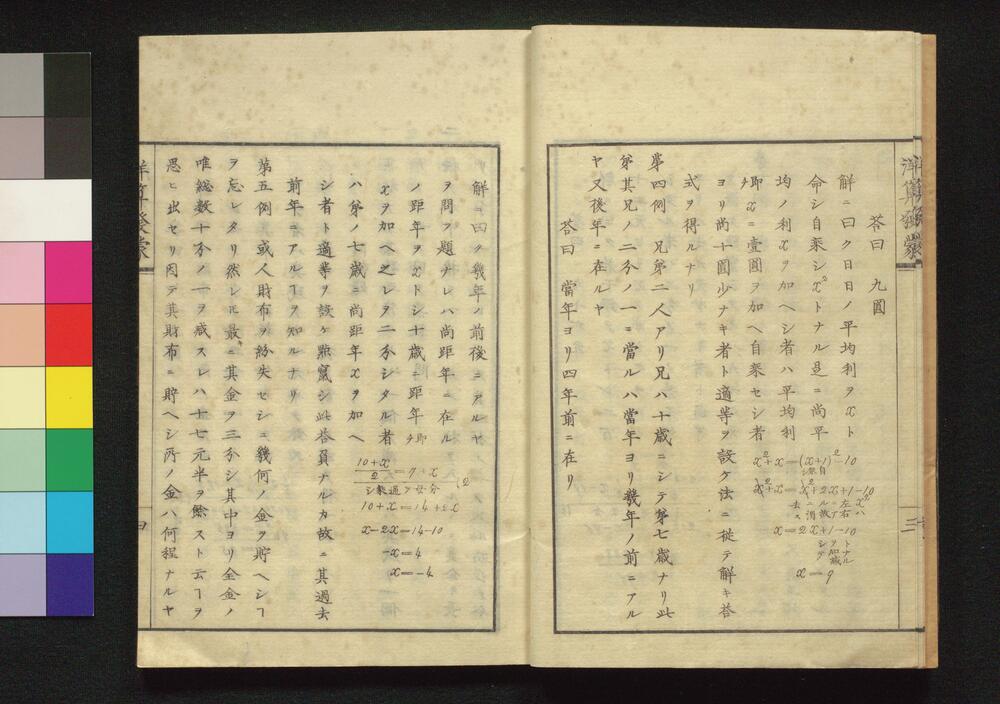 洋算發蒙
三
答曰 九圓
解ニ曰ク日日ノ平均利ヲxト
命シ自乘シx²トナル是ニ尚平
均ノ利xヲ加ヘシ者ハ平均利
即チxニ壹圓ヲ加ヘ自乘セシ者
ヨリ尚十圓少ナキ者ト適等ヲ設ケ法ニ從テ解キ答
式ヲ得ルナリ
x²+x=(x+1)²-10
x²+x=x²+2x+1-10
x=2x+1-10
x=9
第四例 兄弟二人アリ兄ハ十歳ニシテ弟七歳ナリ此
弟其兄ノ二分ノ一ニ當ルハ當年ヨリ幾年ノ前ニアル
ヤ又後年ニ在ルヤ
答曰 當年ヨリ四年前ニ在リ
解ニ曰ク幾年ノ前後ニアルヤ
ヲ問フ題ナレハ尚距年ニ在ル
ノ距年ヲxトシ十歳ニ距年即チ
xヲ加ヘ之レヲ二分シタル者
ハ弟ノ七歳ニ尚距年xヲ加ヘ
シ者ト適等ヲ設ケ點竄シ此答負ナルカ故ニ其過去
前年ニアルヿヲ知ルナリ
10+x/2=7+x
分母ヲ通乘シ
10+x=14+2x
x-2x=14-10
-x=4
x=-4
第五例 或人財布ヲ紛失セシニ幾何ノ金ヲ貯ヘシヿ
ヲ忘レタリ然レ𪜈最ニ其金ヲ三分シ其中ヨリ全金ノ
唯総數十分ノ一ヲ減スレハ十七元半ヲ餘スト云ヿヲ
思ヒ出セリ因テ其財布ニ貯ヘシ所ノ金ハ何程ナルヤ
洋算發蒙
四